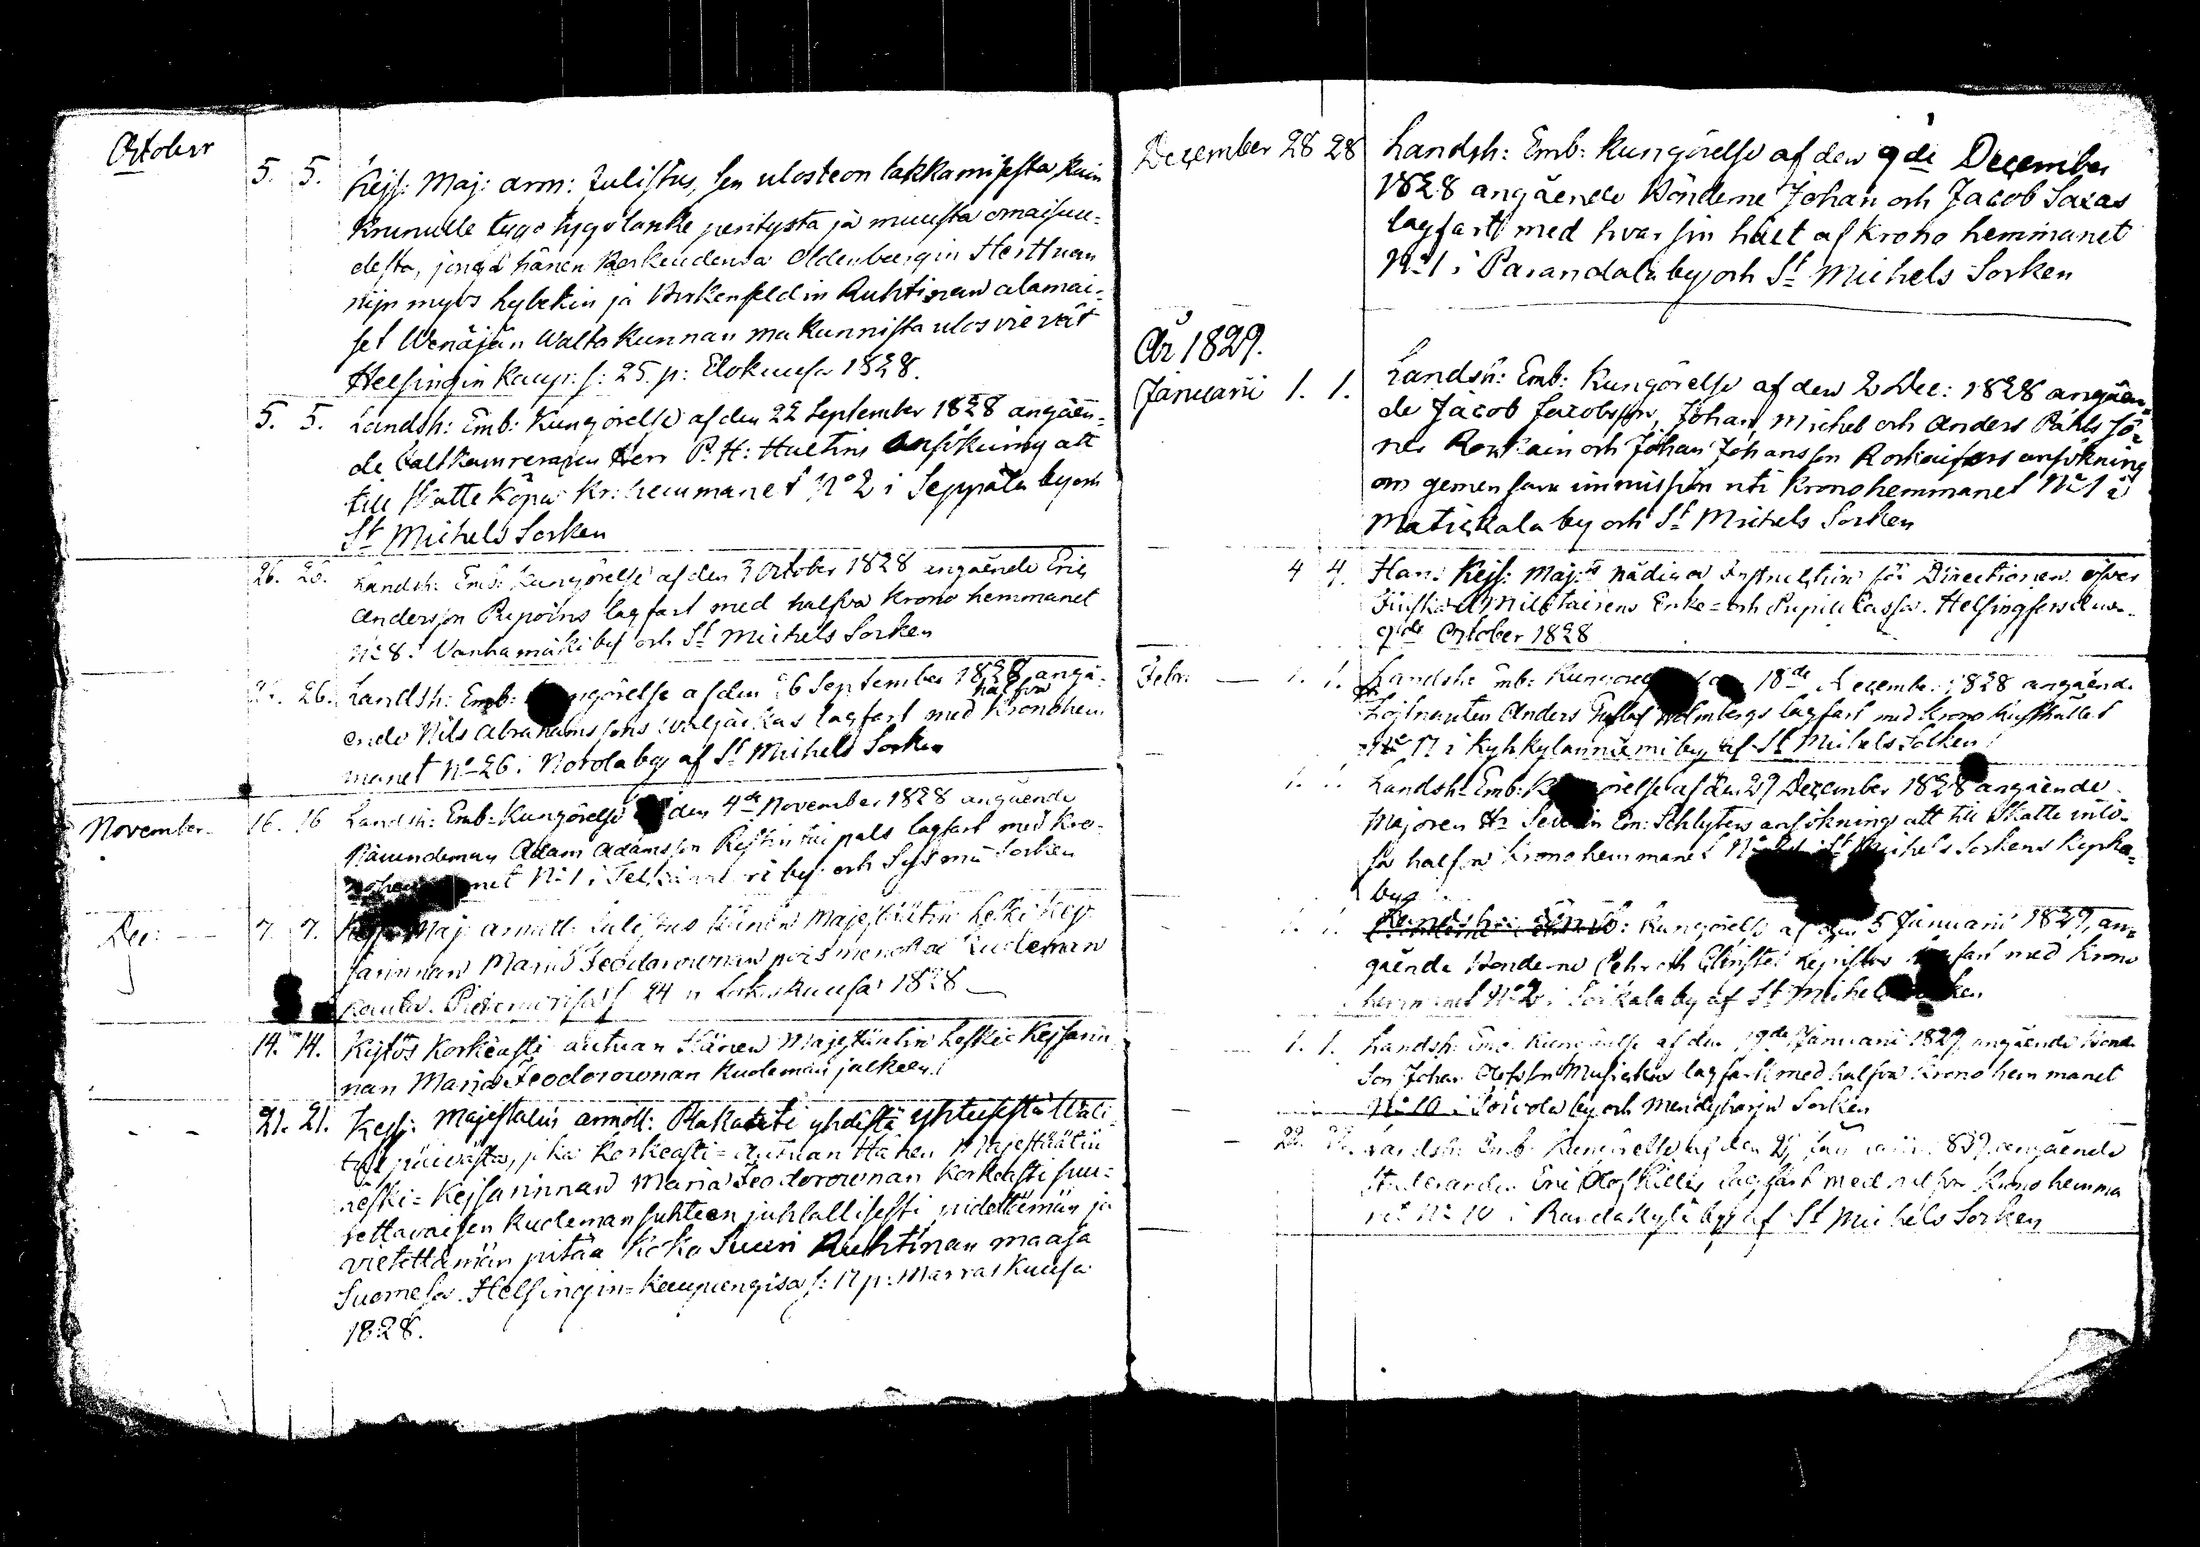 October
5. 5. Kejs: Maj: arm: Julistus, sen ulosteon lakkamisesta, kuin
Krunulle tygö peritystä ja muusta omaisuu-
desta, jonga hänen Korkeudensa Oldenburgin Herttuan
nijn myös Lybekin ja Birkenfeldin Ruhtinan alamai-
set Wenäjän Waltakunnan maakunnista ulosvievät
Helsingin kaup: s: 25. p: Elokuusa 1828.
5. 5. Landsh: Emb: Kungörelse af den 22 September 1828 angåen-
de Herr P. H: Hultins ansökning att
till Skatte köpa Kr: hemmanet No 2 i Seppälä by och
St Michels Socken
26. 26. Landsh: Emb: Kungörelse af den 3 October 1828 angående Eric
Andersson Piipoins lagfart med halfva Krono hemmanet
No 8 i Vanhamäki by och St Michels Socken
26. Landsh: Emb: Kungörelse af den 26 September 1828 angå-
halfva
ende Nils Abrahamssons lagfart med Kronohem
manet No 26 i Norola by af St Michels Socken
November 16. 16 Landsh: Emb: Kungörelse den 4de November 1828 angående
Nämndeman Adam Adamsson lagfart med Kro-
No 1 i by och Sysmä Socken
Dec: 7. 7. Kejs: Maj: armoll: Julistus Hänen Majestätin Leski Kejs
farinnan Maria Feodorownan poismenosta Kuoleman
kautta. Pietarisa s 24 p Lokakuusa 1828
14. 14. Kijtös Korkeasti autuan Hänen Majestätin Leski-Kejsarin
nan Maria Feodorownan Kuoleman jälkeen.
21. 21. Kejs: Majestätin armoll: Plakati yhdestä yhteisestä
päivästä, joka Korkeasti-Autuan Hänen Majestätin
Leski-Kejsarinnan Maria Feodorownan Korkeasti suu-
rettavaisen Kuoleman suhteen juhlallisesti pidettämän ja
vietettämän pitää koko Suuri Ruhtinan maasa
Suomesa. Helsingin-Kaupungisa s: 17 p: Marraskuusa
1828.
December 28 28 Landsh: Emb: Kungörelse af den 9de December
1828 angående Bönderne Johan och Jacob Saxas
lagfart med hvar sin hälft af Krono hemmanet
No 1 i Parandala by och St Michels Socken
År 1829.
Januarii 1. 1. Landsh: Emb: Kungörelse af den 2 Dec: 1828 angåen-
de Jacob Jacobsson, Johan, Michel och Anders Påhls Sö-
ner Roskain och Johan Johansson Roskains ansökning
om gemensam immission uti Kronohemmanet No 1 i
Matiskala by och St Michels Socken
4 4. Hans Kejs: Maj:ts nådiga Instruction för Directionen öfver
Finska Militairens Enke- och Pupill Cassa. Helsingfors den
9de October 1828
Febr: 1. 1. Landsh: Emb: 18de December 1828 angående
Löjtnanten Anders Gustaf Holmbergs lagfart med Krono Rusthållet
No 17 i Kyhkylänniemi by af St Michels Socken
1. 1. Landsh: Emb: Kungörelse af den 27 December 1828 angående
Majoren Hr Severin Em: Schlyters ansökning att till Skatte inlö-
sa halfva Kronohemmanet St Michels Sockens Kyrko-
by
1. 1. Landsh: Emb: Kungörelse af den 5 Januarii 1829, an-
gående Bönderne Pehr och lagfart med Krono
hemmanet No 2 i Soikkala by af St Michels Socken
1. 1. Landsh: Emb: Kungörelse af den 19de Januarii 1829 angående Bonde
Son Johan Olofsson lagfart med halfva Krono hemmanet
No 10 i Toivola by och Mendyharju Socken
22. 22. Landsh: Emb: Kungörelse af den angående
Eric Olof lagfart med halfva Krono hemma
net No 10 i Randakylä by af St Michels Socken